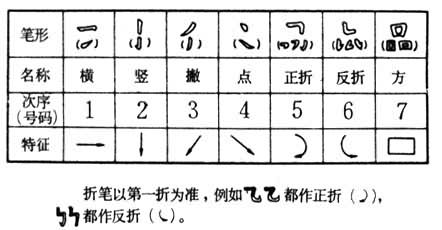 笔形
名称 横 竖 撇 点 正折 反折 方
次序(号码) 1 2 3 4 5 6 7
特征
折笔以第一折为准，例如都作正折(㇁)，
都作反折(㇃)。